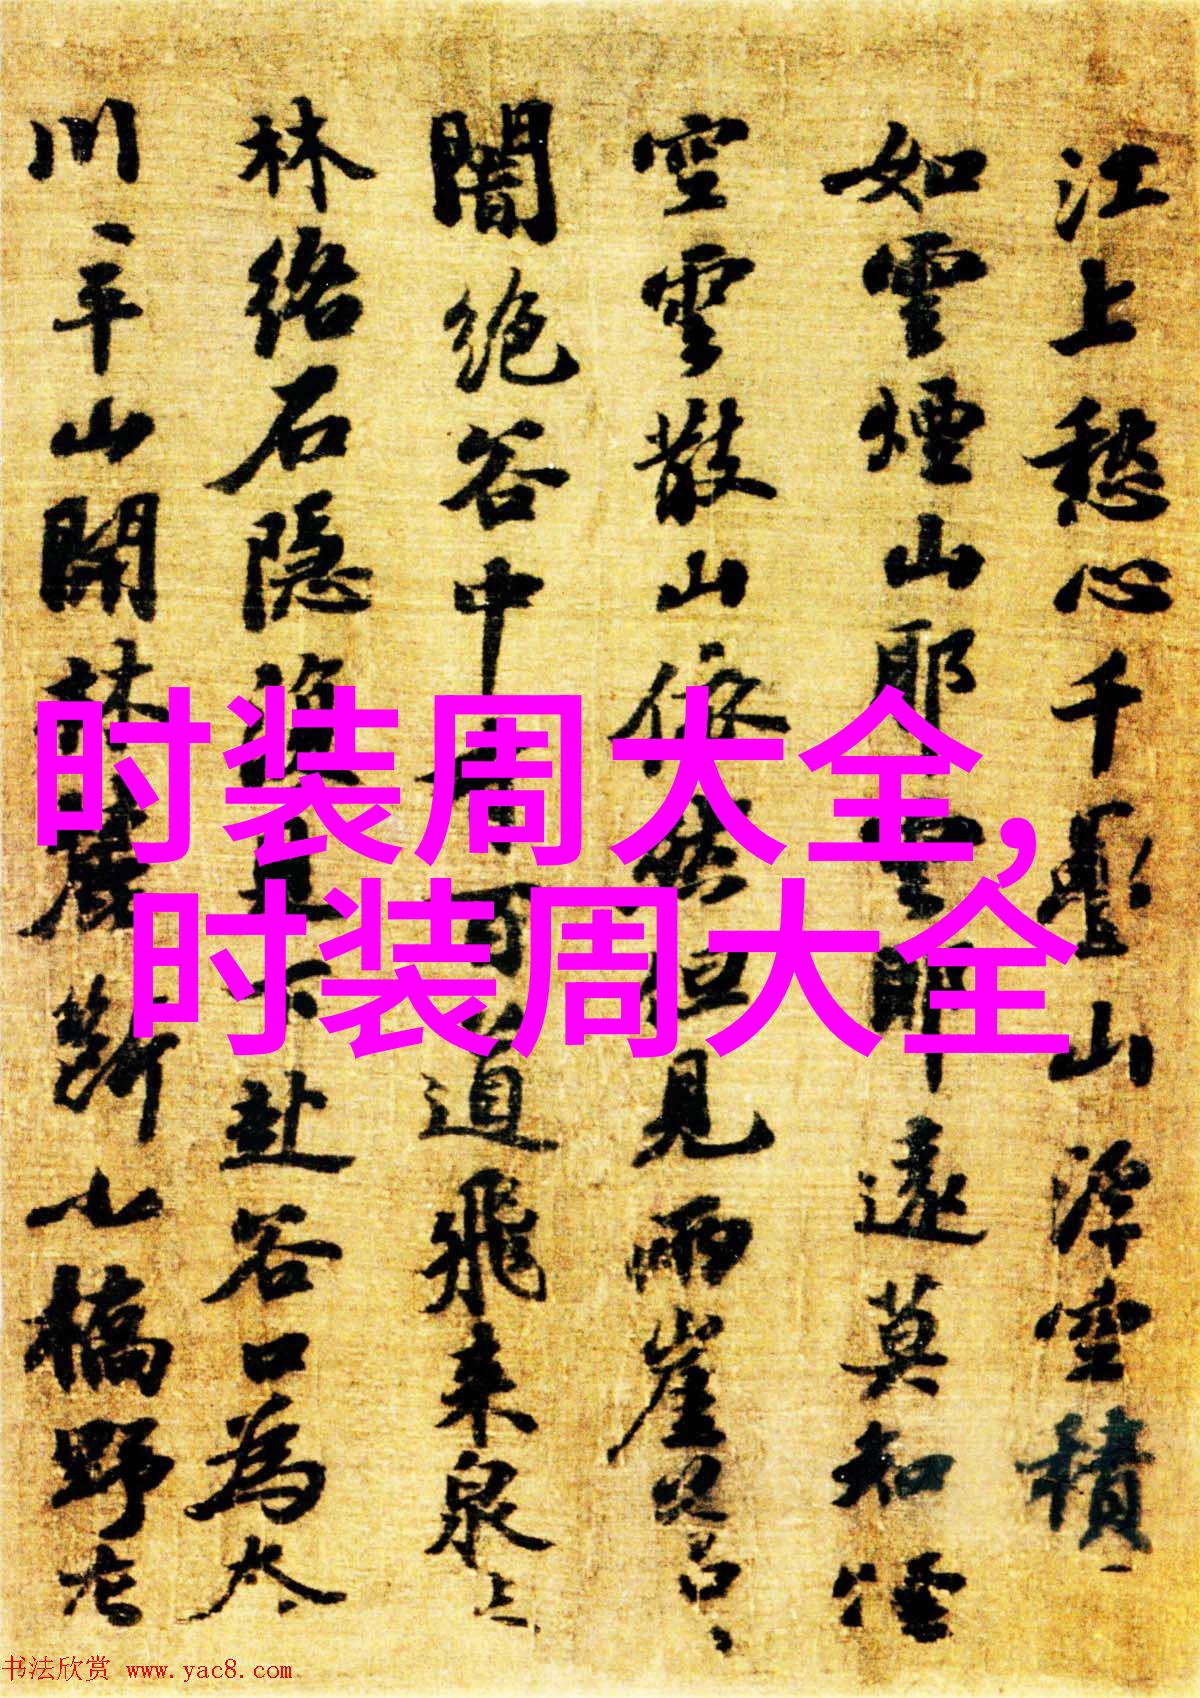 江上愁心千疊山浮空積
如雲煙山耶雲耶遠莫知煙
空雲散山依然但見兩崖蒼
闇絕谷中有百道飛來泉
林絡石隱復見下赴谷口為
川平山開林麓斷小橋野店
时装周大全，
时装周大全
书法欣赏 www.yac8.com